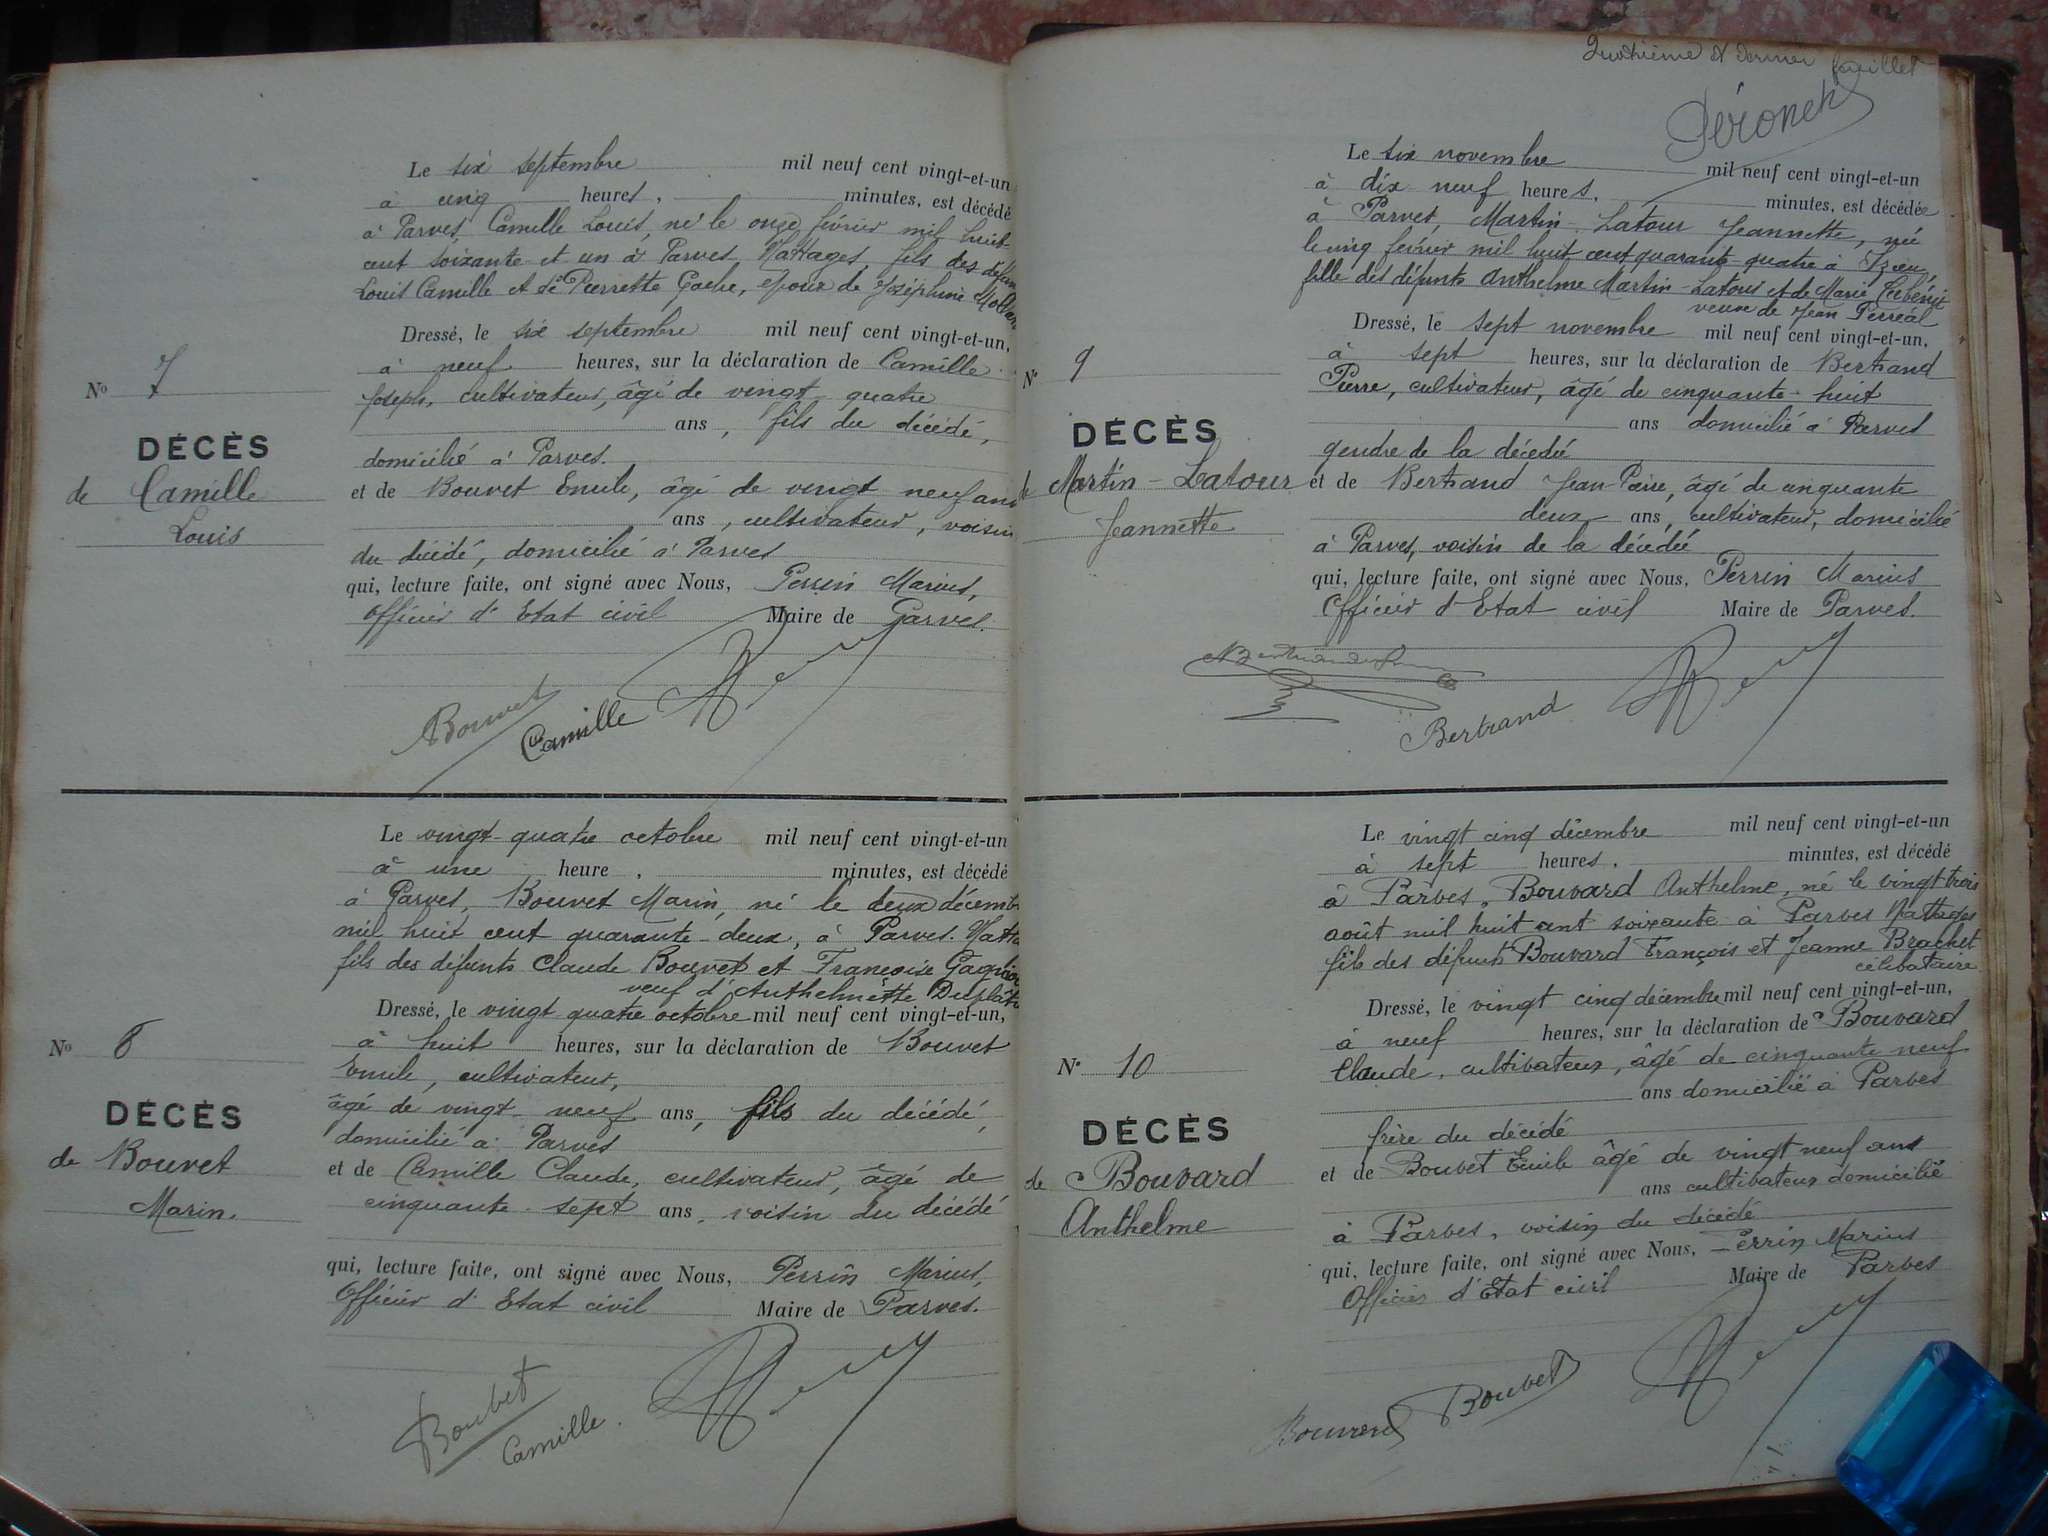 Le six septembre mil neuf cent vingt-et-un
à cinq heures, minutes, est décédé
à Parves, Camille Louis, né le onze février mil huit
cent soixante et un à Parves Nattages, fils des défun
Louis Camille et de Pierrette Gache, époux de Joséphine Mollar
Dressé, le six septembre mil neuf cent vingt-et-un,
à neuf heures, sur la déclaration de Camille
Joseph, cultivateur, âgé de vingt quatre
ans, fils du décédé,
domicilié à Parves.
et de Bouvet Emile, âgé de vingt neuf ans
ans, cultivateur, voisin
du décédé, domicilié à Parves
qui, lecture faite, ont signé avec Nous, Perrin Marius,
Officier d'Etat civil Maire de Parves.
No 7
DÉCÈS
de Camille
Louis
Bouvet
Camille
Le vingt-quatre octobre mil neuf cent vingt-et-un
à une heure, minutes, est décédé
à Parves, Bouvet Marin, né le deux décemb
mil huit cent quarante-deux, à Parves. Natta
fils des défunts Claude Bouvet et Françoise
veuf d'Anthelmette
Dressé, le vingt quatre octobre mil neuf cent vingt-et-un,
à huit heures, sur la déclaration de Bouvet
Emile, cultivateur,
âgé de vingt-neuf ans, fils du décédé,
domicilié à Parves
et de Camille Claude, cultivateur, âgé de
cinquante-sept ans, voisin du décédé
qui, lecture faite, ont signé avec Nous, Perrin Marius,
Officier d'Etat civil Maire de Parves.
No 8
DÉCÈS
de Bouvet
Marin.
Boubet
Camille.
Quatrième et dernier feuillet
Péronet
Le six novembre mil neuf cent vingt-et-un
à dix neuf heures, minutes, est décédée
à Parves, Martin-Latour Jeannette, née
le cinq février mil huit cent quarante-quatre à Izieu,
fille des défunts Anthelme Martin-Latour et de Marie
veuve de Jean Perréal
Dressé, le sept novembre mil neuf cent vingt-et-un,
à sept heures, sur la déclaration de Bertrand
Pierre, cultivateur, âgé de cinquante-huit
ans domicilié à Parves
gendre de la décédée
et de Bertrand Jean-Pierre, âgé de cinquante
deux ans, cultivateur, domicilié
à Parves, voisin de la décédée
qui, lecture faite, ont signé avec Nous, Perrin Marius
Officier d'Etat civil Maire de Parves.
No 9
DÉCÈS
de Martin-Latour
Jeannette
Bertrand
Le vingt cinq décembre mil neuf cent vingt-et-un
à sept heures, minutes, est décédé
à Parves, Bouvard Anthelme, né le vingt trois
août mil huit cent soixante à Parves Nattages
fils des défunts Bouvard François et Jeanne Brachet
célibataire
Dressé, le vingt cinq décembre mil neuf cent vingt-et-un,
à neuf heures, sur la déclaration de Bouvard
Claude, cultivateur, âgé de cinquante neuf
ans domicilié à Parves
frère du décédé
et de Bouvet Emile âgé de vingt neuf ans
ans cultivateur domicilié
à Parves, voisin du décédé
qui, lecture faite, ont signé avec Nous, Perrin Marius
Officier d'Etat civil Maire de Parves
No 10
DÉCÈS
de Bouvard
Anthelme
Bouvard
Boubet